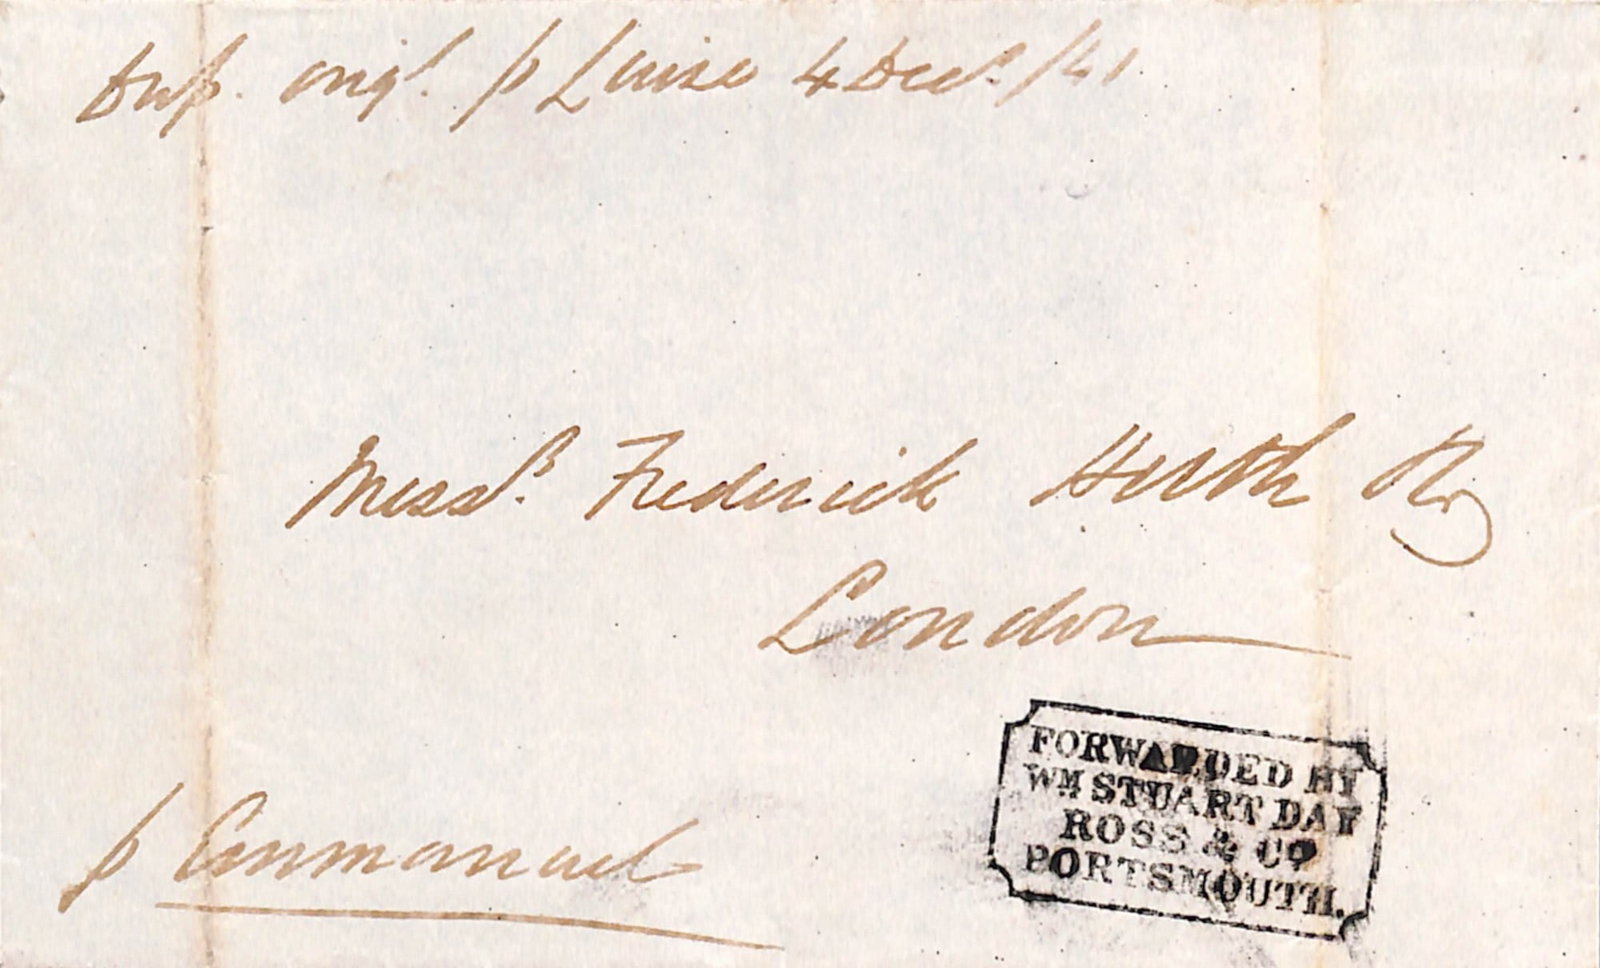 Dup. origl. p Luisa 4 Decr. /41
Messrs. Frederick Huth & Co
London
p Emmanuel
FORWARDED BY
WM STUART DAY
ROSS & CO
PORTSMOUTH.